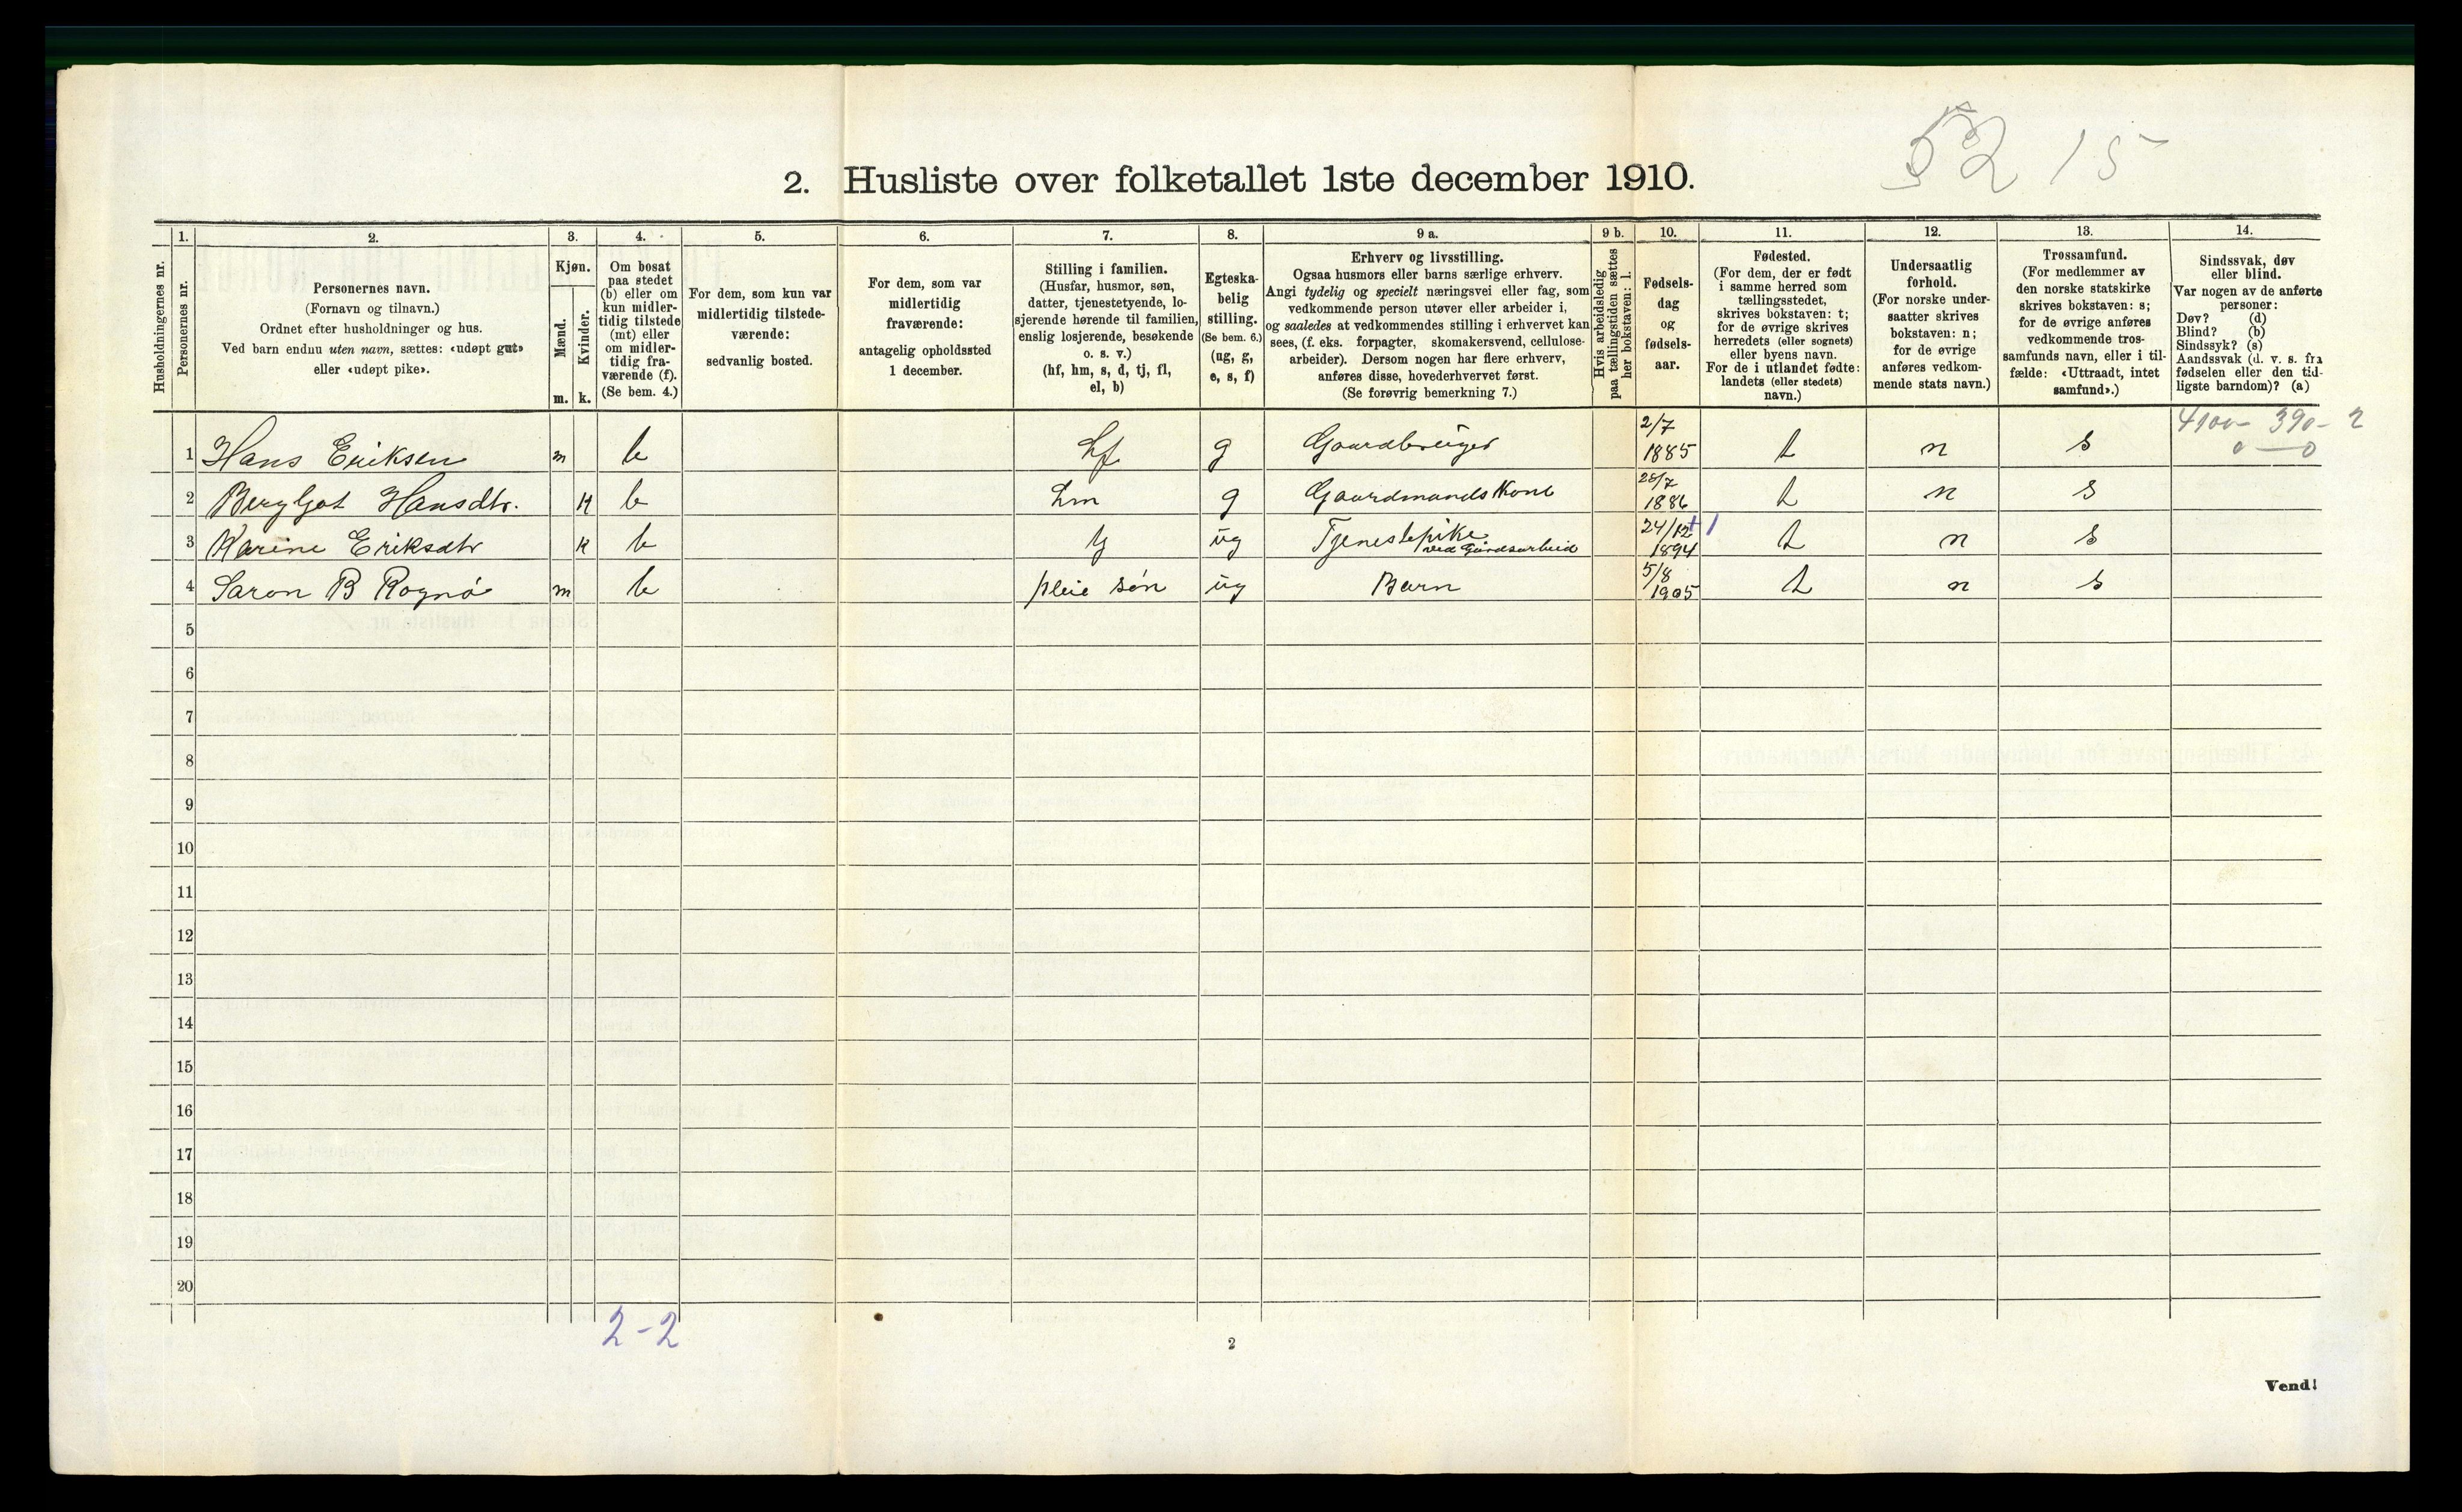 52 15
2. Husliste over folketallet 1ste december 1910.
Husholdningernes nr.
1.
Personernes nr.
2.
Personernes navn.
(Fornavn og tilnavn.)
Ordnet efter husholdninger og hus.
Ved barn endnu uten navn, sættes: «udøpt gut»
eller «udøpt pike».
3.
Kjøn.
Mænd.
Kvinder.
m. k.
4.
Om bosat
paa stedet
(b) eller om
kun midler-
tidig tilstede
(mt) eller
om midler-
tidig fra-
værende (f).
(Se bem. 4.)
5.
For dem, som kun var
midlertidig tilstede-
værende:
sedvanlig bosted.
6.
For dem, som var
midlertidig
fraværende:
antagelig opholdssted
1 december.
7.
Stilling i familien.
(Husfar, husmor, søn,
datter, tjenestetyende, lo-
sjerende hørende til familien,
enslig losjerende, besøkende
o. s. v.)
(hf, hm, s, d, tj, fl,
el, b)
8.
Egteska-
belig
stilling.
(Se bem. 6.)
(ug, g,
e, s, f)
9 a.
Erhverv og livsstilling.
Ogsaa husmors eller barns særlige erhverv.
Angi tydelig og specielt næringsvei eller fag, som
vedkommende person utøver eller arbeider i,
og saaledes at vedkommendes stilling i erhvervet kan
sees, (f. eks. forpagter, skomakersvend, cellulose-
arbeider). Dersom nogen har flere erhverv,
anføres disse, hovederhvervet først.
(Se forøvrig bemerkning 7.)
9 b.
Hvis arbeidsledig
paa tællingstiden sættes
her bokstaven: l.
10.
Fødsels-
dag
og
fødsels-
aar.
11.
Fødested.
(For dem, der er født
i samme herred som
tællingsstedet,
skrives bokstaven: t;
for de øvrige skrives
herredets (eller sognets)
eller byens navn.
For de i utlandet fødte:
landets (eller stedets)
navn.)
12.
Undersaatlig
forhold.
(For norske under-
saatter skrives
bokstaven: n;
for de øvrige
anføres vedkom-
mende stats navn.)
13.
Trossamfund.
(For medlemmer av
den norske statskirke
skrives bokstaven: s;
for de øvrige anføres
vedkommende tros-
samfunds navn, eller i til-
fælde: «Uttraadt, intet
samfund».)
14.
Sindssvak, døv
eller blind.
Var nogen av de anførte
personer:
Døv? (d)
Blind? (b)
Sindssyk? (s)
Aandssvak (d. v. s. fra
fødselen eller den tid-
ligste barndom)? (a)
4100- 390- 2
0 — 0
1 Hans Eriksen m b hf g Gaardbruger 2/7 1885 t n s
2 Bergljot Hansdtr. k b hm g Gaardmands kone 28/7 1886 t n s
3 Karine Eriksdtr k b tj ug Tjenestepike ved Gaardsarbeid 24/12 1894 t n s
4 Saron B Rognø m b pleie søn ug Barn 5/8 1905 t n s
5
6
7
8
9
10
11
12
13
14
15
16
17
18
19
20
2-2
2
Vend!